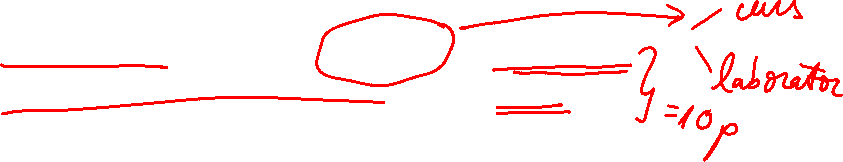 curs
laborator
=10p